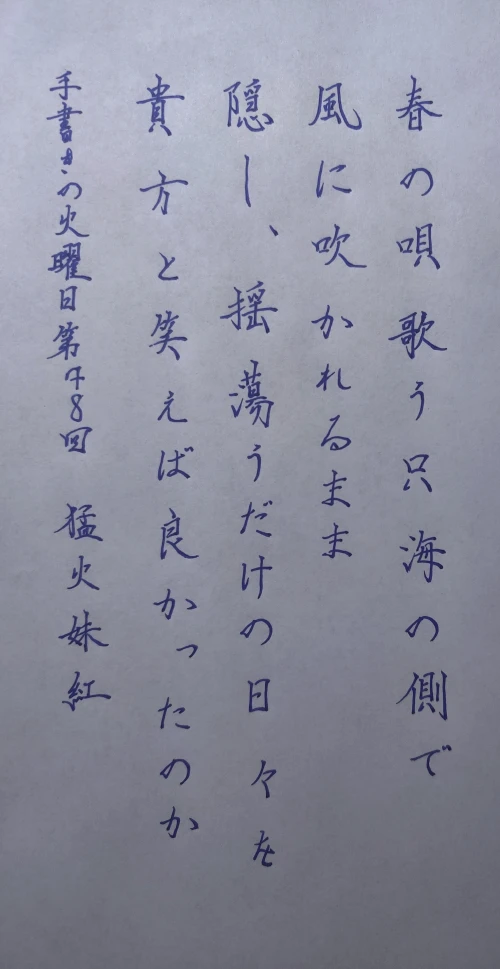 春の唄歌う只海の側で
風に吹かれるまま
隠し、揺蕩うだけの日々を
貴方と笑えば良かったのか
手書きの火曜日第48回 猛火妹紅